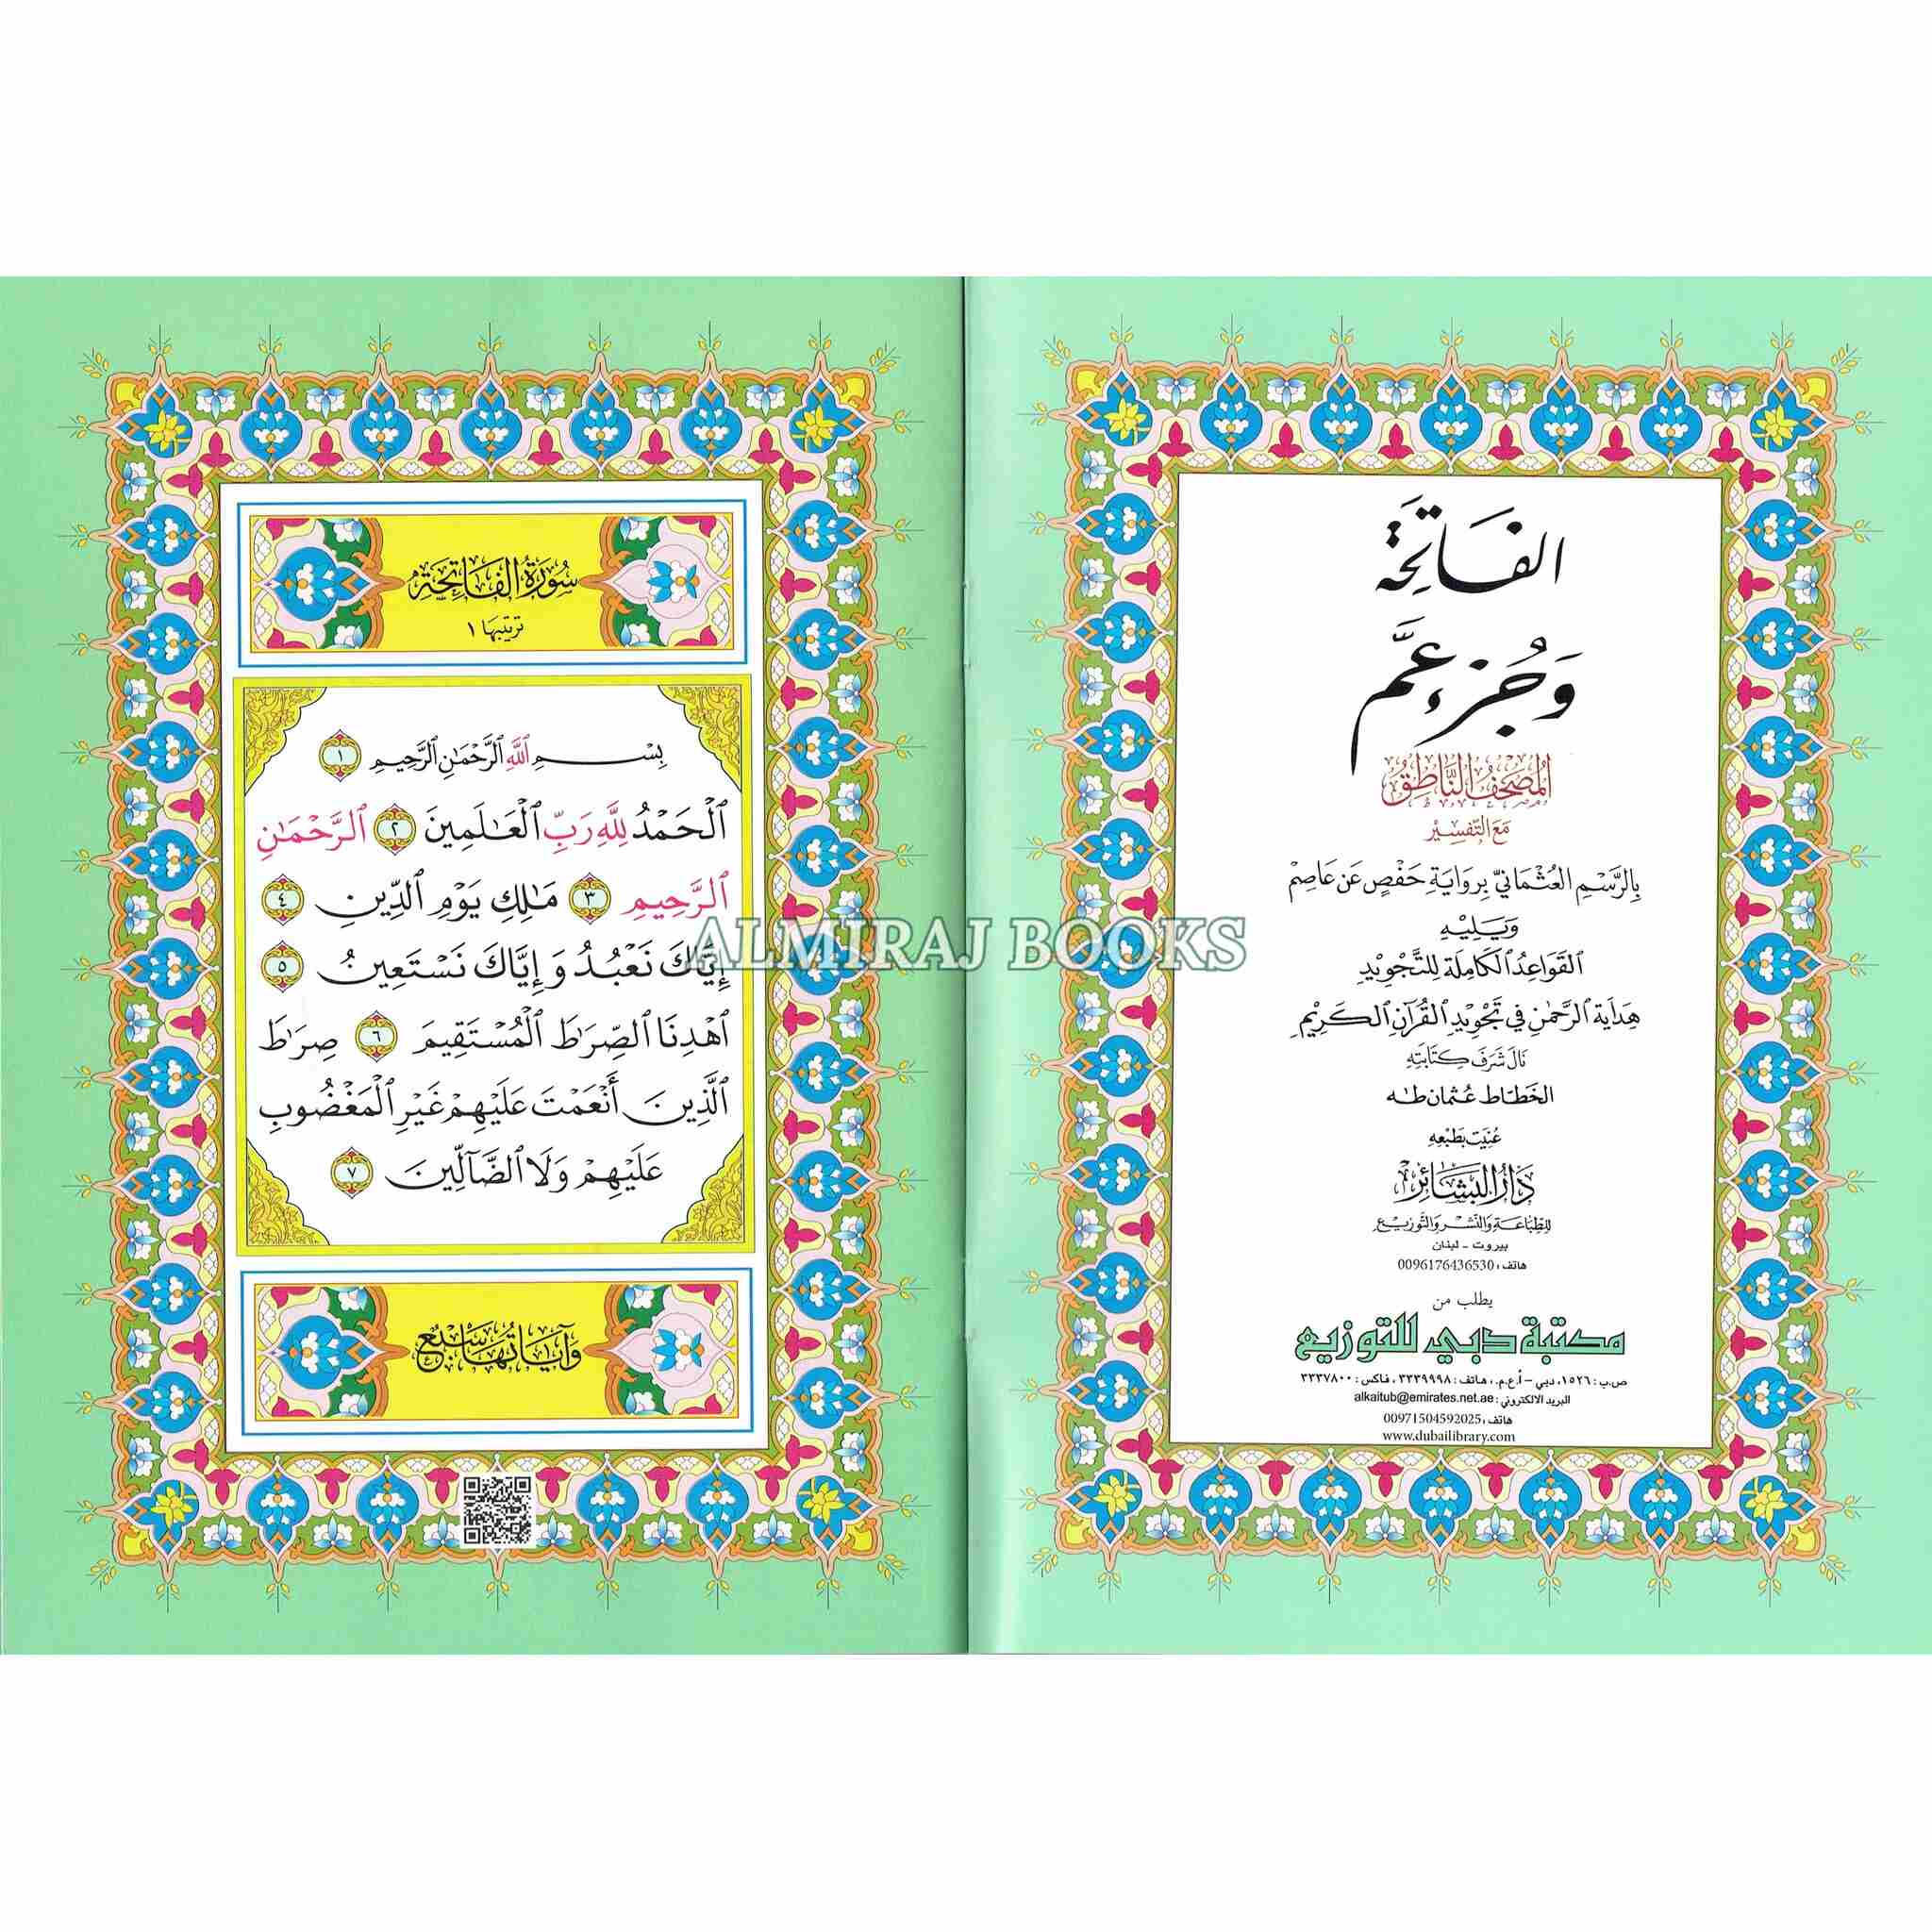 الفَاتِحَة
وَجُزء عَمَّ
المُصْحَفُ النَّاطِقُ
مَعَ التَّفسِيْر
بِالرَّسْمِ العُثْمَانِيّ بِرِوَايَةِ حَفْصٍ عَن عَاصِمْ
وَيَلِيْهِ
القَوَاعِدُ الكَامِلَة لِلتَّجْوِيْدِ
هِدَايَة الرَّحْمٰنِ فِي تَجْوِيْدِ القُرآنِ الكَرِيْمِ
نَالَ شَرَفَ كِتَابَتِهِ
الخَطَّاط عُثمَان طٰه
عُنِيَت بِطَبْعِهِ
دَارُ البَشَائِر
لِلطِّبَاعَةِ وَالنَّشْرِ وَالتَّوْزِيْعِ
بيروت - لبنان
هاتف: 0096176436530
يطلب من
مكتبة دبي للتوزيع
ص.ب: ١٥٢٦، دبي - أ.ع.م.، هاتف: ٣٣٣٩٩٩٨، فاكس: ٣٣٣٧٨٠٠
البريد الالكتروني: alkaitub@emirates.net.ae
هاتف: 00971504592025
www.dubailibrary.com
سُورَةُ الفَاتِحَة
ترتيبها ١
بِسْمِ ٱللَّهِ ٱلرَّحْمَٰنِ ٱلرَّحِيمِ ١
ٱلْحَمْدُ لِلَّهِ رَبِّ ٱلْعَٰلَمِينَ ٢ ٱلرَّحْمَٰنِ
ٱلرَّحِيمِ ٣ مَٰلِكِ يَوْمِ ٱلدِّينِ ٤
إِيَّاكَ نَعْبُدُ وَإِيَّاكَ نَسْتَعِينُ ٥
ٱهْدِنَا ٱلصِّرَٰطَ ٱلْمُسْتَقِيمَ ٦ صِرَٰطَ
ٱلَّذِينَ أَنْعَمْتَ عَلَيْهِمْ غَيْرِ ٱلْمَغْضُوبِ
عَلَيْهِمْ وَلَا ٱلضَّآلِّينَ ٧
وَآيَاتُهَا سَبْعٌ
ALMIRAJ BOOKS